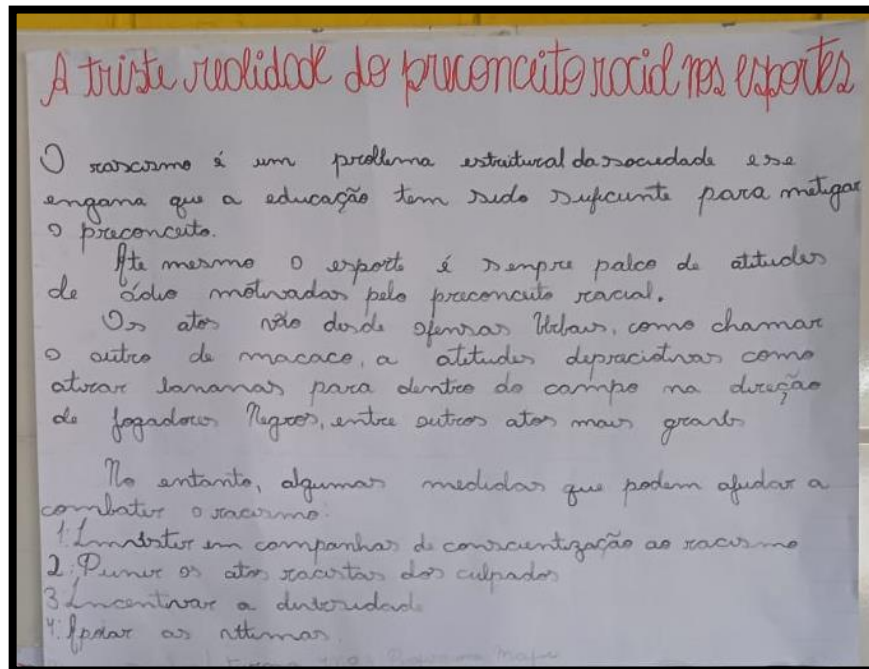 A triste realidade do preconceito racial nos esportes
O rascismo é um problema estrutural da sociedade e se
engana que a educação tem sido suficiente para metigar
o preconceito.
Ate mesmo o esporte é sempre palco de atitudes
de ódio motivadas pelo preconceito racial.
Os atos vão desde ofensas Verbais, como chamar
o outro de macaco, a atitudes depreciativas como
atirar bananas para dentro do campo na direção
de jogadores Negros, entre outros atos mais graves
No entanto, algumas medidas que podem ajudar a
combater o racismo:
1: Investir em campanhas de conscientização ao racismo
2: Punir os atos racistas dos culpados
3 Incentivar a diversidade
4: Apoiar as vítimas.